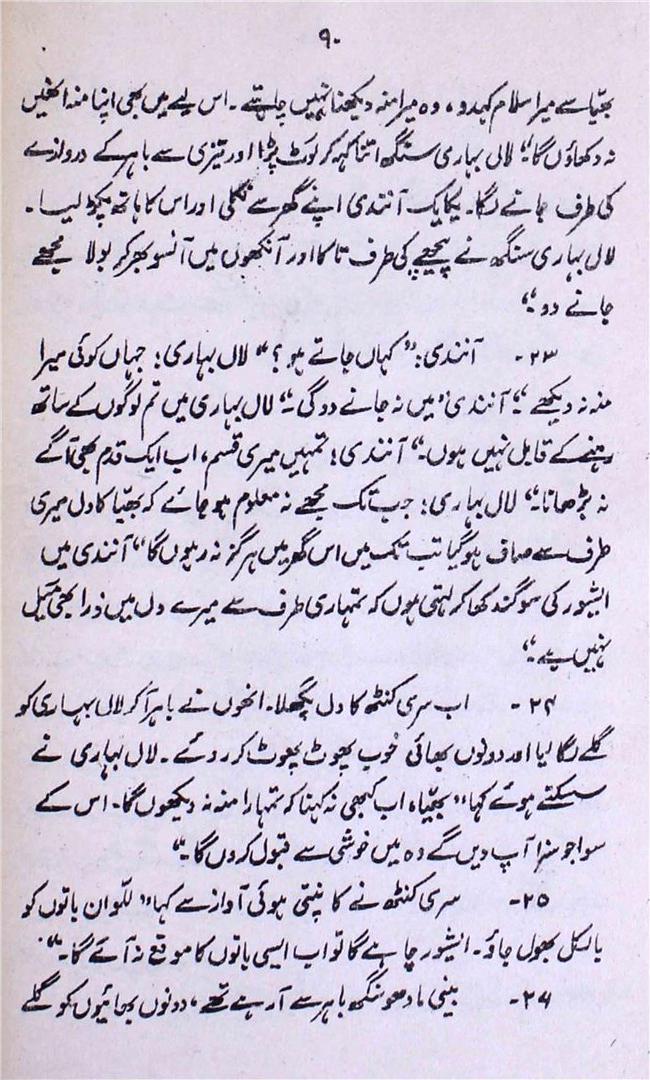 ۹۰
بھیّا سے میرا سلام کہدو، وہ میرا منہ دیکھنا نہیں چاہتے۔ اس لیے میں بھی اپنا منہ انھیں
نہ دکھاؤں گا۔“ لال بہاری سنگھ اتنا کہہ کر لوٹ پڑا اور تیزی سے باہر کے دروازے
کی طرف جانے لگا۔ یکایک آنندی اپنے گھر سے نکلی اور اس کا ہاتھ پکڑ لیا۔
لال بہاری سنگھ نے پیچھے کی طرف تاکا اور آنکھوں میں آنسو بھر کر بولا مجھے
جانے دو۔“
۲۳۔ آنندی: ”کہاں جاتے ہو؟“ لال بہاری: جہاں کوئی میرا
منہ نہ دیکھے۔“ آنندی ’میں نہ جانے دوں گی۔“ لال بہاری میں تم لوگوں کے ساتھ
رہنے کے قابل نہیں ہوں۔“ آنندی: تمہیں میری قسم، اب ایک قدم بھی آگے
نہ بڑھانا۔“ لال بہاری: جب تک مجھے نہ معلوم ہو جائے کہ بھیّا کا دل میری
طرف سے صاف ہو گیا تب تک میں اس گھر میں ہرگز نہ رہوں گا“ آنندی میں
ایشور کی سوگند کھا کر کہتی ہوں کہ تمہاری طرف سے میرے دل میں ذرا بھی میل
نہیں ہے۔“
۲۴۔ اب سری کنٹھ کا دل پگھلا۔ انھوں نے باہر آکر لال بہاری کو
گلے لگا لیا اور دونوں بھائی خوب پھوٹ پھوٹ کر روئے۔ لال بہاری نے
سسکتے ہوئے کہا ”بھیّا، اب کبھی نہ کہنا کہ تمہارا منہ نہ دیکھوں گا۔ اس کے
سوا جو سزا آپ دیں گے وہ میں خوشی سے قبول کروں گا۔“
۲۵۔ سری کنٹھ نے کانپتی ہوئی آواز سے کہا ”للّو ان باتوں کو
بالکل بھول جاؤ۔ ایشور چاہے گا تو اب ایسی باتوں کا موقع نہ آئے گا۔“
۲۶۔ بینی مادھو سنگھ باہر سے آرہے تھے، دونوں بھائیوں کو گلے